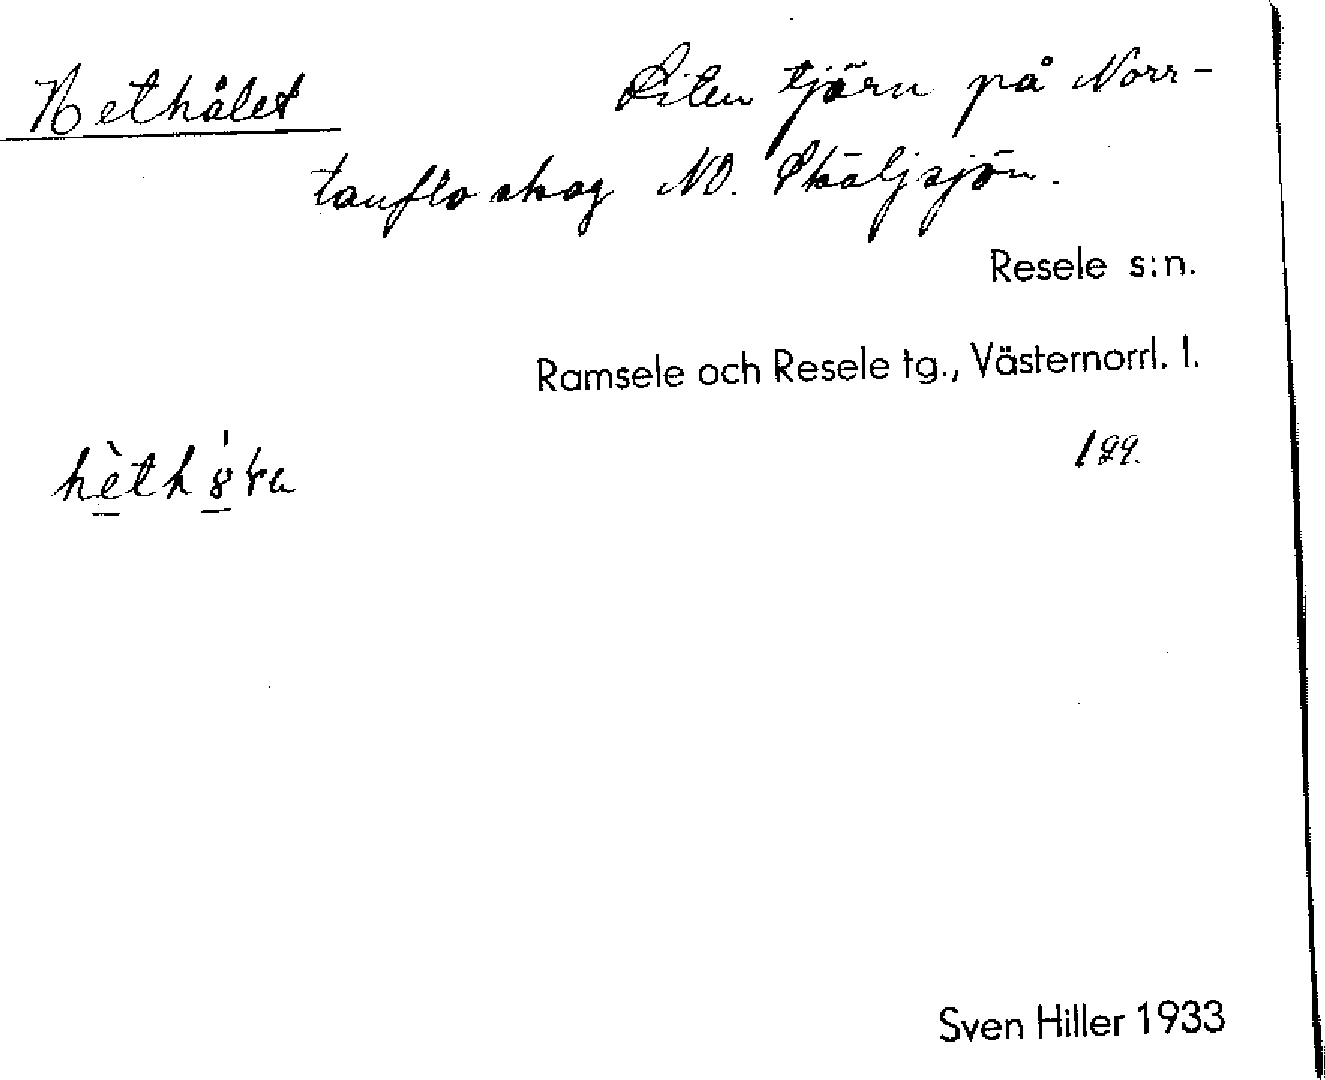 Hethålet
Liten tjärn på Norr-
tanflo skog NO. Skäljsjön.
Resele s:n.
Ramsele och Resele tg., Västernorrl. l.
199.
Sven Hiller 1933